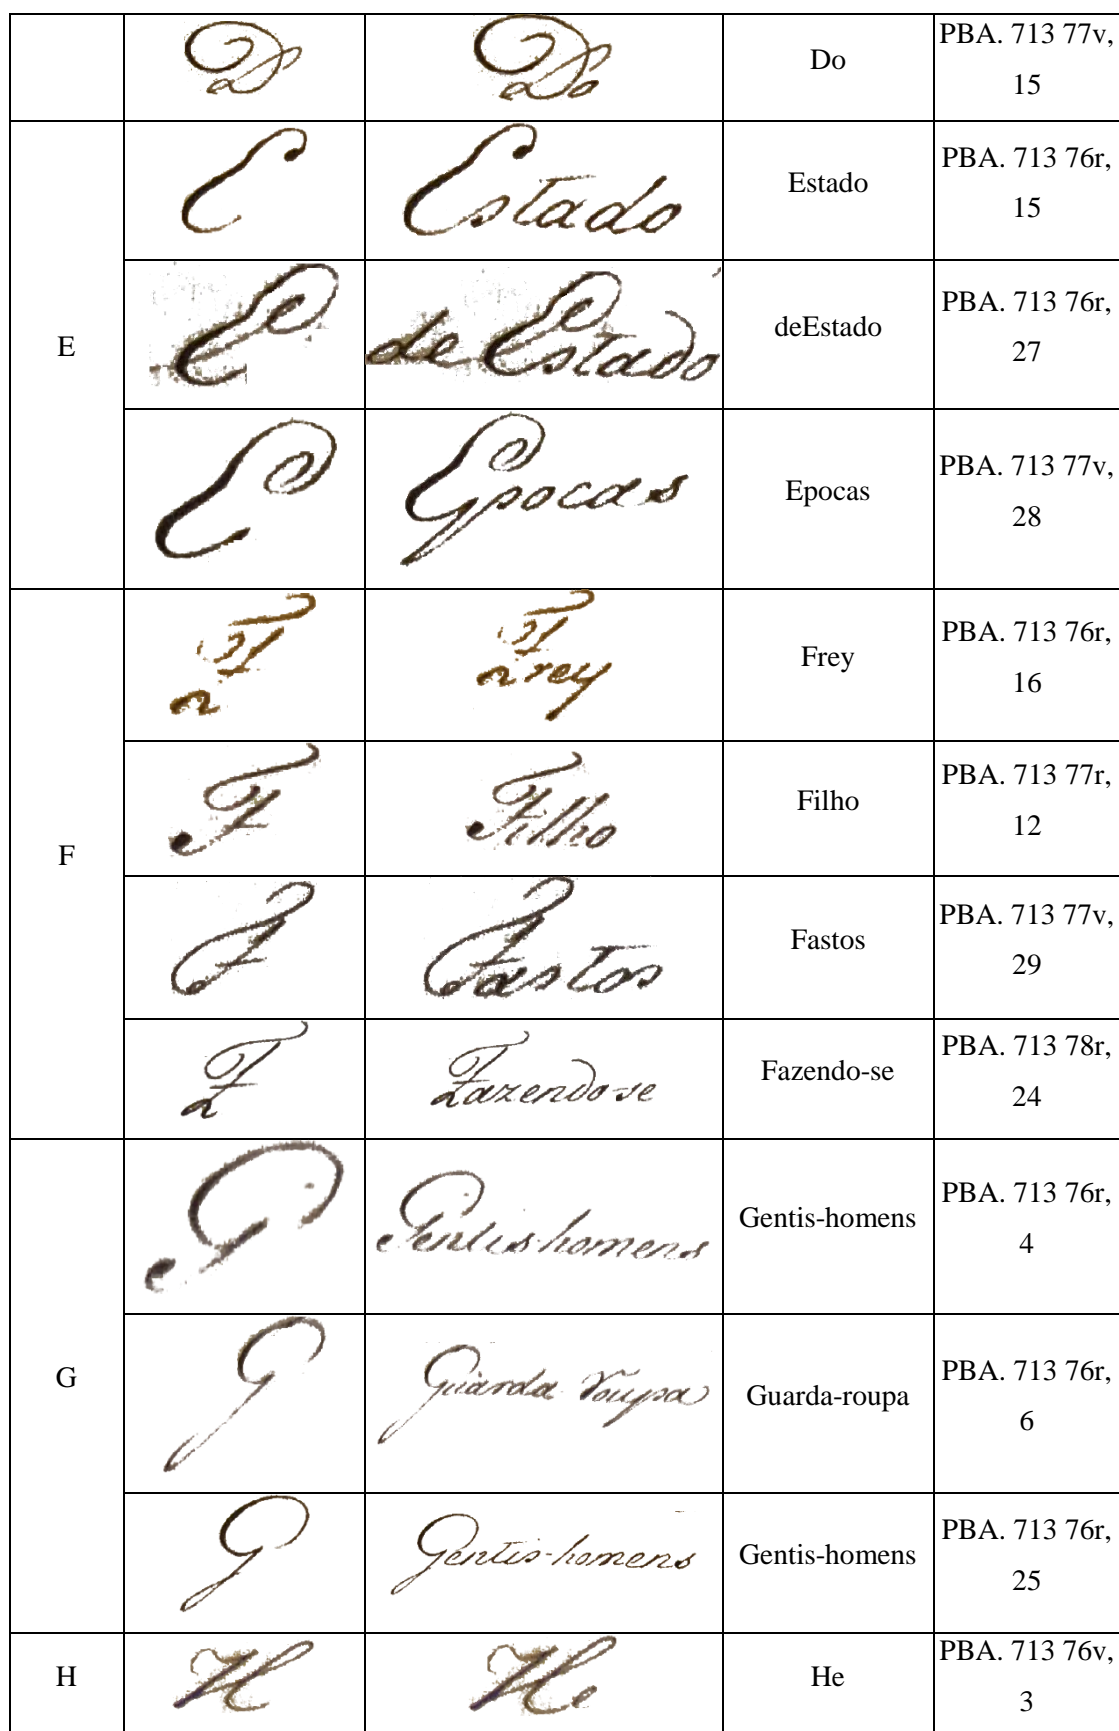 D Do Do PBA. 713 77v,
15
E Estado Estado PBA. 713 76r,
15
E
E de Estado deEstado PBA. 713 76r,
27
E Epocas Epocas PBA. 713 77v,
28
F Frey Frey PBA. 713 76r,
16
F
F Filho Filho PBA. 713 77r,
12
F Fastos Fastos PBA. 713 77v,
29
F Fazendo-se Fazendo-se PBA. 713 78r,
24
G Gentis homens Gentis-homens PBA. 713 76r,
4
G
G Guarda-roupa Guarda-roupa PBA. 713 76r,
6
G Gentis-homens Gentis-homens PBA. 713 76r,
25
H H He He PBA. 713 76v,
3